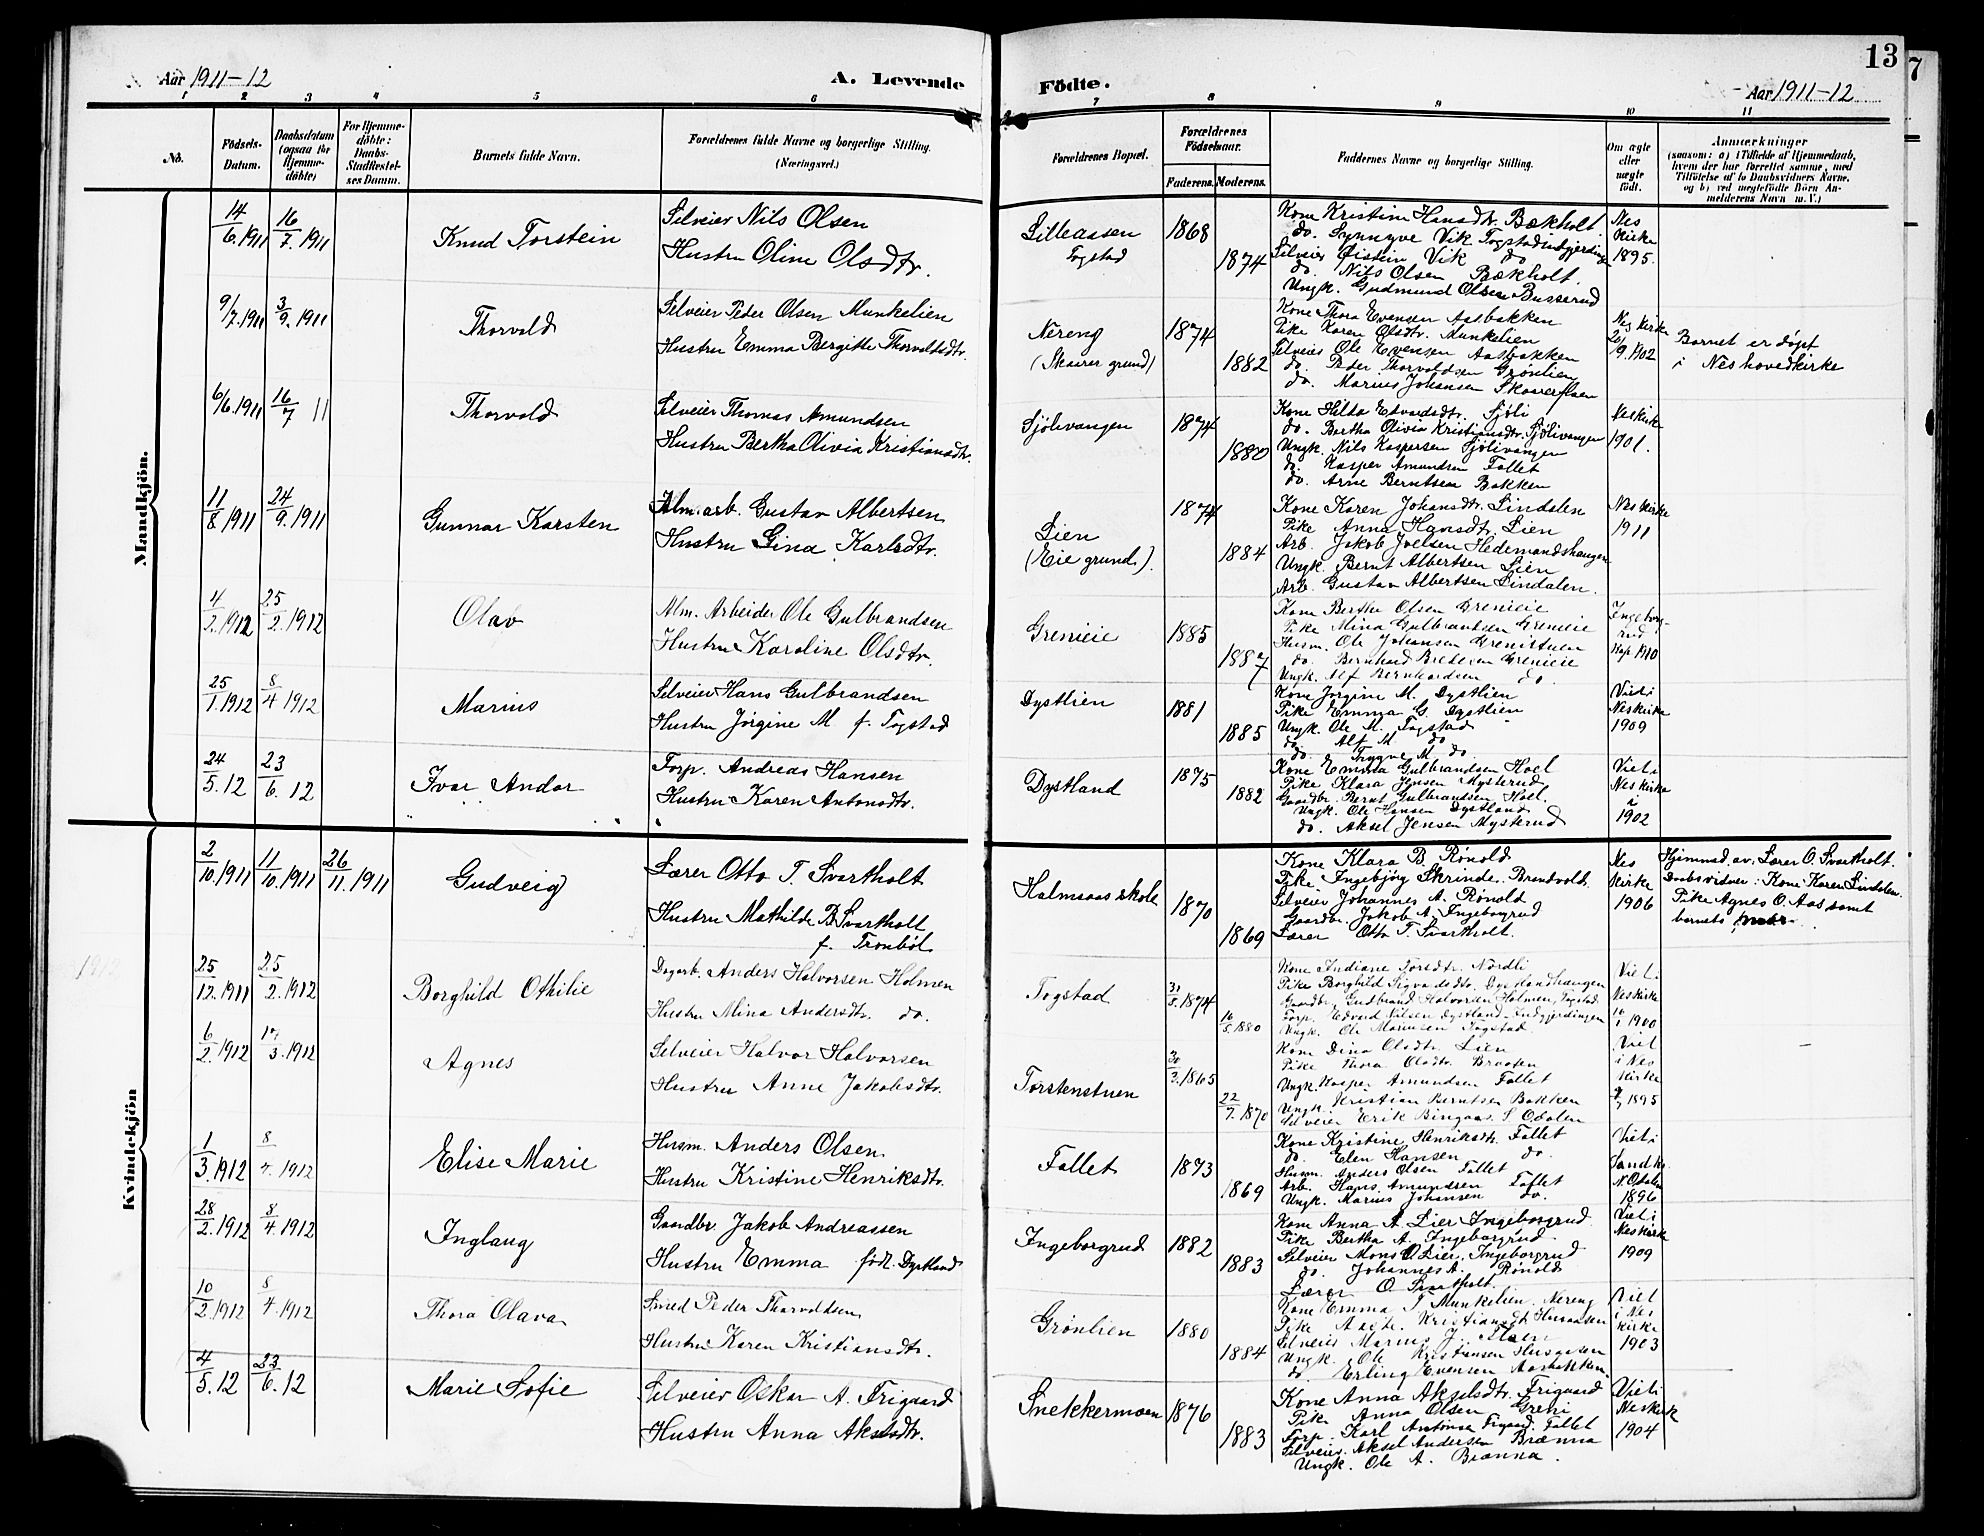 13
7
Aar 1911-12
A. Levende
Födte.
Aar 1911-12
1 2 3 4 5 6
7 8 9 10 11
No.
Födsels-
Datum.
Daabsdatum
(ogsaa for
Hjemme-
döbte)
For Hjemme-
döbte:
Daabs-
Stadfæstel-
ses Datum.
Barnets fulde Navn.
Forældrenes fulde Navne og borgerlige Stilling.
(Næringsvei.)
Forældrenes Bopæl.
Forældrenes
Födselsaar.
Faderens. Moderens.
Faddernes Navne og borgerlige Stilling.
Om ægte
eller
uægte
födt.
Anmærkninger
(saasom: a) i Tilfælde af Hjemmedaab,
hvem der har forrettet samme, med
Tilföielse af to Daabsvidners Navne,
og b) ved uægtefödte Börn An-
melderens Navn m. V.)
Mandkjön.
14/6.1911 16/7.1911 Knud Torstein
Selveier Nils Olsen
Hustru Oline Olsdtr.
Lilleaasen
Togstad
1868
1874
Kone Kristine Hansdtr. Bækholt.
do. Synnyve Vik Togstadutgjerdingen
Selveier Øistein Vik do
do. Nils Olsen Bækholt.
Ungk. Gudmund Olsen Busserud
Nes
Kirke
1895.
9/7.1911 3/9.1911 Thorvald
Selveier Peder Olsen Munkelien
Hustru Emma Bergitte Thorvaldsdtr.
Nereng
(Skaarer grund)
1874
1882
Kone Thora Evensen Aasbakken
Pike Karen Olsdtr. Munkelien
Selveier Ole Evensen Aasbakken
do. Peder Thorvaldsen Grønlien
do. Marius Johansen Skaarerflaen
Nes Kirke
20/9.1902
Barnet er døpt
i Nes hovedkirke
6/6.1911 16/7 11 Thorvald
Selveier Thomas Amundsen
Hustru Bertha Olivia Kristiansdtr.
Sjölivangen
1874
1880
Kone Hilda Edvardsdtr. Sjöli
do. Bertha Olivia Kristiansdtr. Sjölivangen
Ungk. Nils Kaspersen Sjölivangen
do. Kasper Amundsen Fallet
do. Arne Berntsen Bakken
Neskirke
1901.
11/8 1911 24/9.1911 Gunnar Karsten
Alm. arb. Gustav Albertsen
Hustru Gina Karlsdtr.
Lien
(Eie grund.)
1874
1884
Kone Karen Johansdtr. Lindalen
Pike Anna Hansdtr. Lien
Arb. Jakob Joelsen Hedemandshaugen
Ungk. Bernt Albertsen Lien
Arb. Gustav Albertsen Lindalen.
Neskirke
1911
4/2.1912 25/2.1912 Olav
Alm. Arbeider Ole Gulbrandsen
Hustru Karoline Olsdtr.
Grenieie
1885
1887
Kone Berthe Olsen Grenieie
Pike Mina Gulbrandsen Grenieie
Husm. Ole Johansen Grenistuen
do. Bernhard Pedersen Grenieie
Ungk. Alf Bernhardsen do.
Ingeborg-
rud
Kap. 1910
25/1.1912 8/4 1912 Marius
Selveier Hans Gulbrandsen
Hustru Jörgine M f. Togstad
Dystlien
1881
1885
Kone Jörgine M. Dystlien
Pike Emma G. Dystlien
Ungk. Ole M. Togstad
do Alf M do
do Trygve M do
Viet i
Neskirke
1909
24/5.12 23/6.12 Ivar Andor
Forp. Andreas Hansen
Hustru Karen Antonsdtr.
Dystland
1875
1882
Kone Emma Gulbrandsen Hoel
Pike Klara Jensen Mysterud
Gaardbr. Bernt Gulbrandsen Hoel.
Ungk. Ole Hansen Dystland
do. Aksel Jensen Mysterud
Viet i
Neskirke
i
1902
Kvindekjön
2/10.1911 11/10.1911 26/11.1911 Gudveig
Lærer Otto T. Svartholt
Hustru Mathilde B. Svartholt
f. Trønbøl
Halmsaas skole
1870
1869
Kone Klara B. Rönold
Pike Ingebjörg Skrinde, Brandvold
Selveier Johannes A. Rönold
Gaardbr. Jakob A. Ingeborgrud
Lærer Otto T. Svartholt.
Nes
Kirke
1906
Hjemmed. av: Lærer O. Svartholt.
Daabsvidner: Kone Karen Lindalen
Pike Agnes O. Aas samt
barnets mor
1912
25/12.1911 25/2.1912 Borghild Othilie
Dagarb. Anders Halvorsen Holmen
Hustru Mina Andersdtr. do.
Togstad
31/5.1874
16/5.1880
Kone Indiane Torsdtr. Nordli
Pike Borghild Sigvadsdtr. Dystlandhaugen
Gaardbr. Gudbrand Halvorsen Holmen, Togstad
Forp. Edvard Nilsen Dystland-Indgjerdingen
Ungk. Ole Mariusen Togstad
Viet i
Neskirke
1900
6/2.1912 17/3.1912 Agnes
Selveier Halvor Halvorsen
Hustru Anne Jakobsdtr.
Torstenstuen
30/3.1865
22/7.1870
Kone Dina Olsdtr. Lien
Pike Thora Olsdtr. Braaten
Ungk. Kasper Amundsen Fallet
Ungk. Kristian Berntsen Bakken
Selveier Erik Bingaas S. Odalen
Viet
i Nes
Kirke
1895
1/3.1912 8/4.1912 Elise Marie
Husm. Anders Olsen
Hustru Kristine Henriksdtr.
Fallet
1873
1869
Kone Kristine Henriksdtr. Fallet
do. Elen Hansen do.
Husm. Anders Olsen Fallet
Arb. Hans Amundsen Fallet
Ungk. Marius Johansen do.
Viet i
Sandk.
N. Odalen
1896
28/2.1912 8/4.1912 Inglaug
Gaardbr. Jakob Andreassen
Hustru Emma född. Dystland
Ingeborgrud
1882
1883
Kone Anna A. Lier Ingeborgrud
Pike Bertha A. Ingeborgrud
Selveier Mons O Lier, Ingeborgrud
do. Johannes A. Rönold
Lærer O. Svartholt.
Viet i
Neskirke
1909
10/2.1912 8/4.1912 Thora Olava
Smed Peder Thorvaldsen
Hustru Karen Kristiansdtr.
Grønlien
1880
1884
Kone Emma T Munkelien, Nereng
Pike Kristiansdtr. Husaasen
Selveier Marius J. Flaen
Ungk. Ole Kristiansen Husaasen
do. Erling Evensen Aasbakken
Viet
i Nes
kirke
1903
4/5.12 23/6.12 Marie Sofie
Selveier Oskar A. Frigaard
Hustru Anna Akselsdtr.
Snekkermoen
1876
1883
Kone Anna Akselsdtr. Frigaard
Pike Anna Olsen Greni
Forp. Karl Antonsen Frigaard. Fallet
Selveier Aksel Andersen Brænna
Ungk. Ole A. Brænna.
Viet i
Neskirk
1904